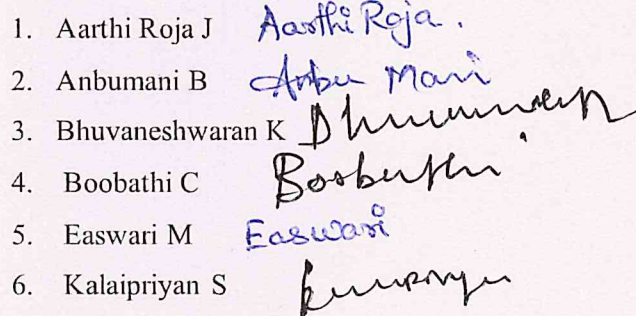 1. Aarthi Roja J Aarthi Roja.
2. Anbumani B Anbu Mani
3. Bhuvaneshwaran K
4. Boobathi C Boobathi
5. Easwari M Easwari
6. Kalaipriyan S